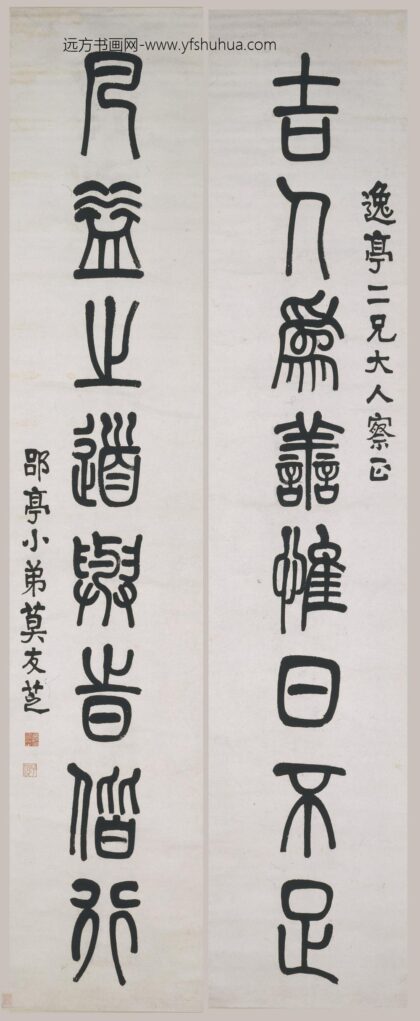 远方书画网-www.yfshuhua.com
逸亭二兄大人察正
吉人爲譱惟日不足
凡益之道與旹偕行
郘亭小弟莫友芝